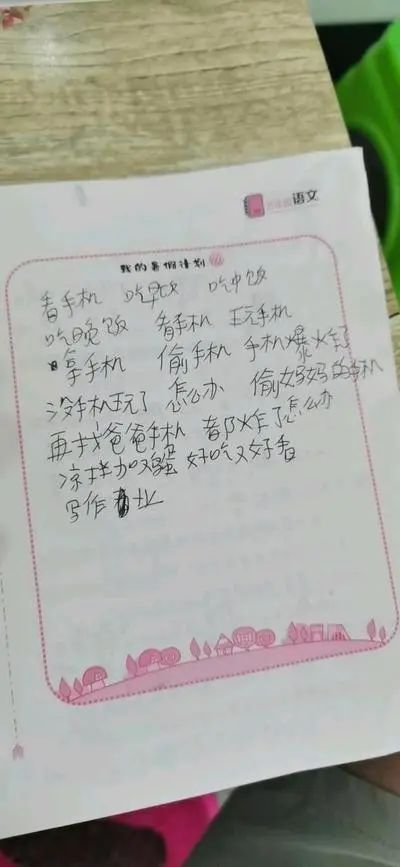 语文
我的暑假计划
看手机 吃早饭 吃中饭
吃晚饭 看手机 玩手机
拿手机 偷手机 手机爆炸了
没手机玩了 怎么办 偷妈妈的手机
再找爸爸手机 都炸了怎么办
凉拌加又骚 好吃又好香
写作业